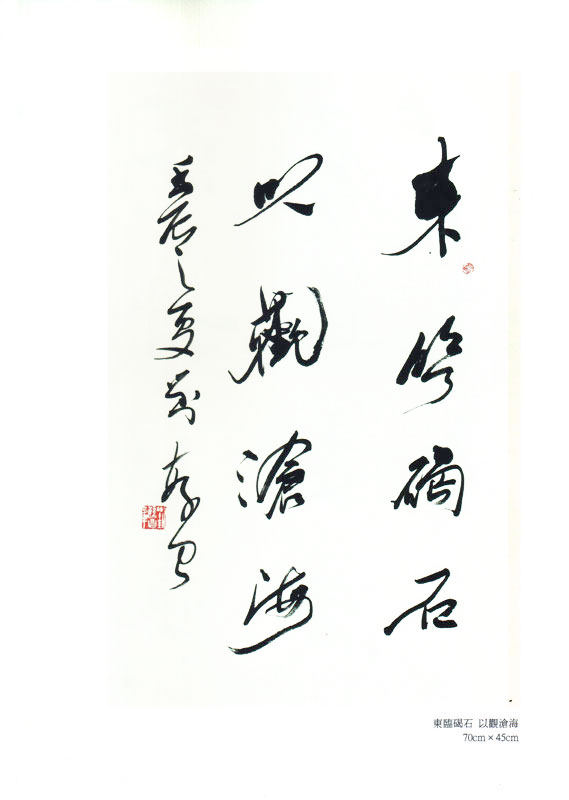 東臨碣石
以觀滄海
壬辰之夏
東臨碣石 以觀滄海
70cm × 45cm